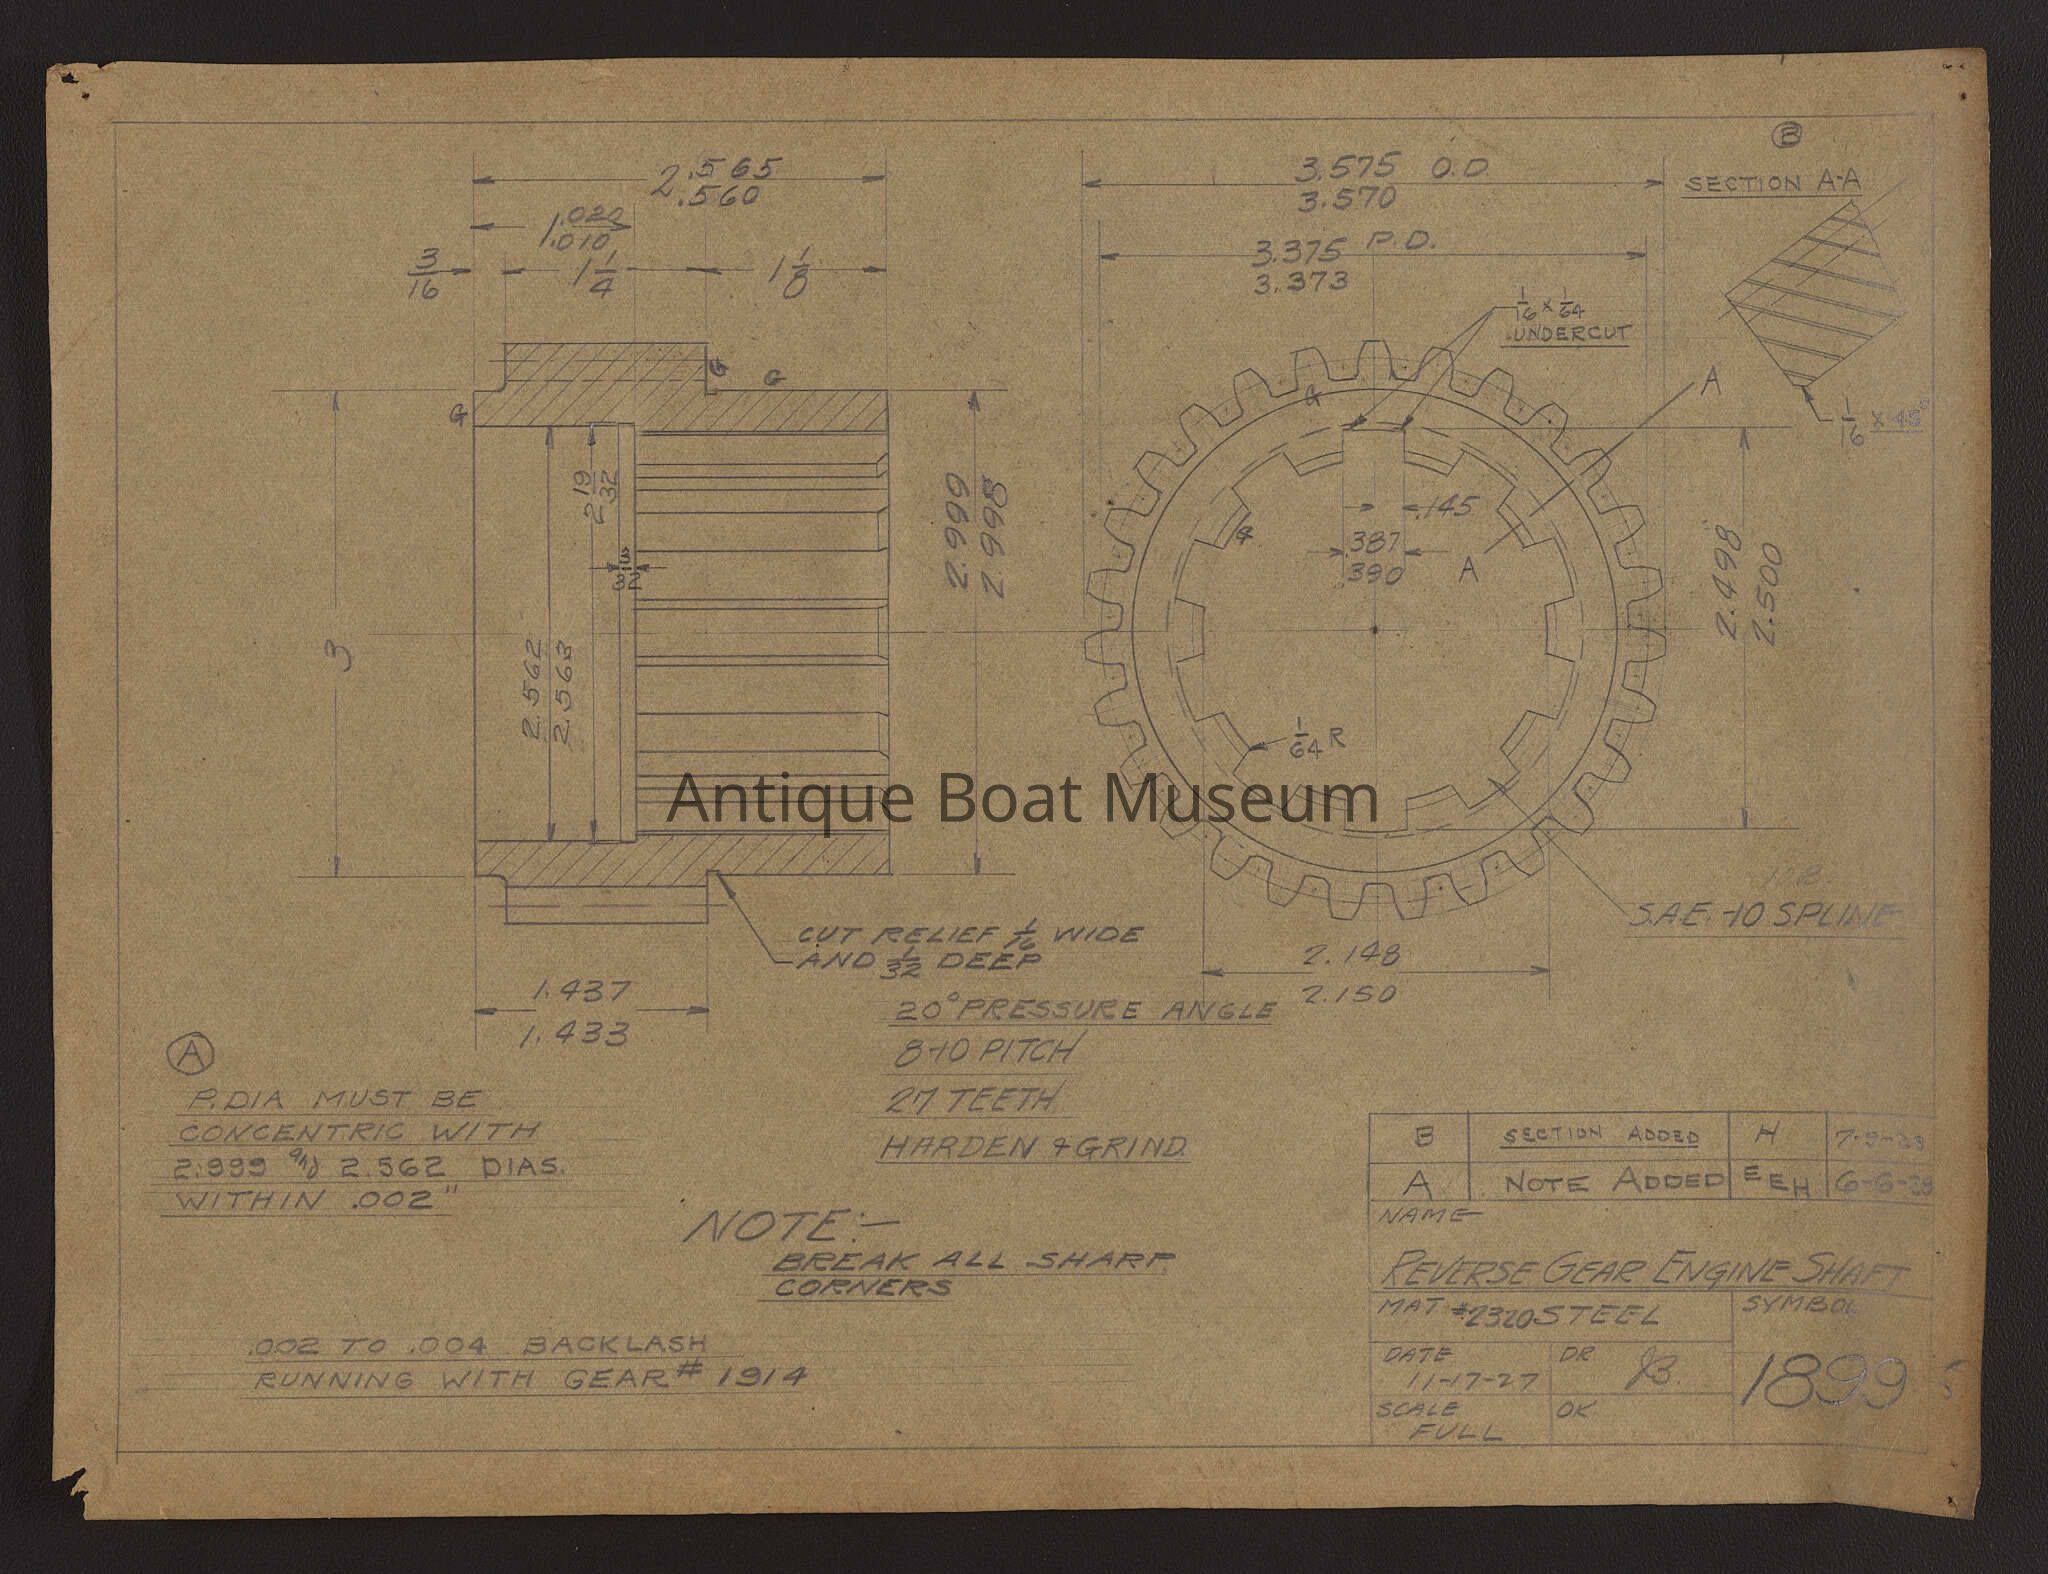 2.565
2.560
1.020
1.010
3/16
1 1/4
1 1/8
G
G
G
3
2 19/32
3/32
2.562
2.563
2.999
2.998
CUT RELIEF 1/16 WIDE
AND 1/32 DEEP
1.437
1.433
3.575 O.D.
3.570
3.375 P.D.
3.373
1/16 x 1/64
UNDERCUT
B
SECTION A-A
1/16 x 45°
A
G
G
.145
.387
.390
A
2.498"
2.500
1/64 R
S.A.E.-10 SPLINE
2.148
2.150
20° PRESSURE ANGLE
8-10 PITCH
27 TEETH
HARDEN & GRIND.
A
P.DIA MUST BE
CONCENTRIC WITH
2.999 and 2.562 DIAS.
WITHIN .002"
NOTE:-
BREAK ALL SHARP
CORNERS
.002 TO .004 BACKLASH
RUNNING WITH GEAR # 1914
B SECTION ADDED H 7-9-28
A NOTE ADDED EEH 6-6-28
NAME
REVERSE GEAR ENGINE SHAFT
MAT #2320 STEEL
SYMBOL
1899
DATE
11-17-27
DR JB.
SCALE
FULL
OK
Antique Boat Museum